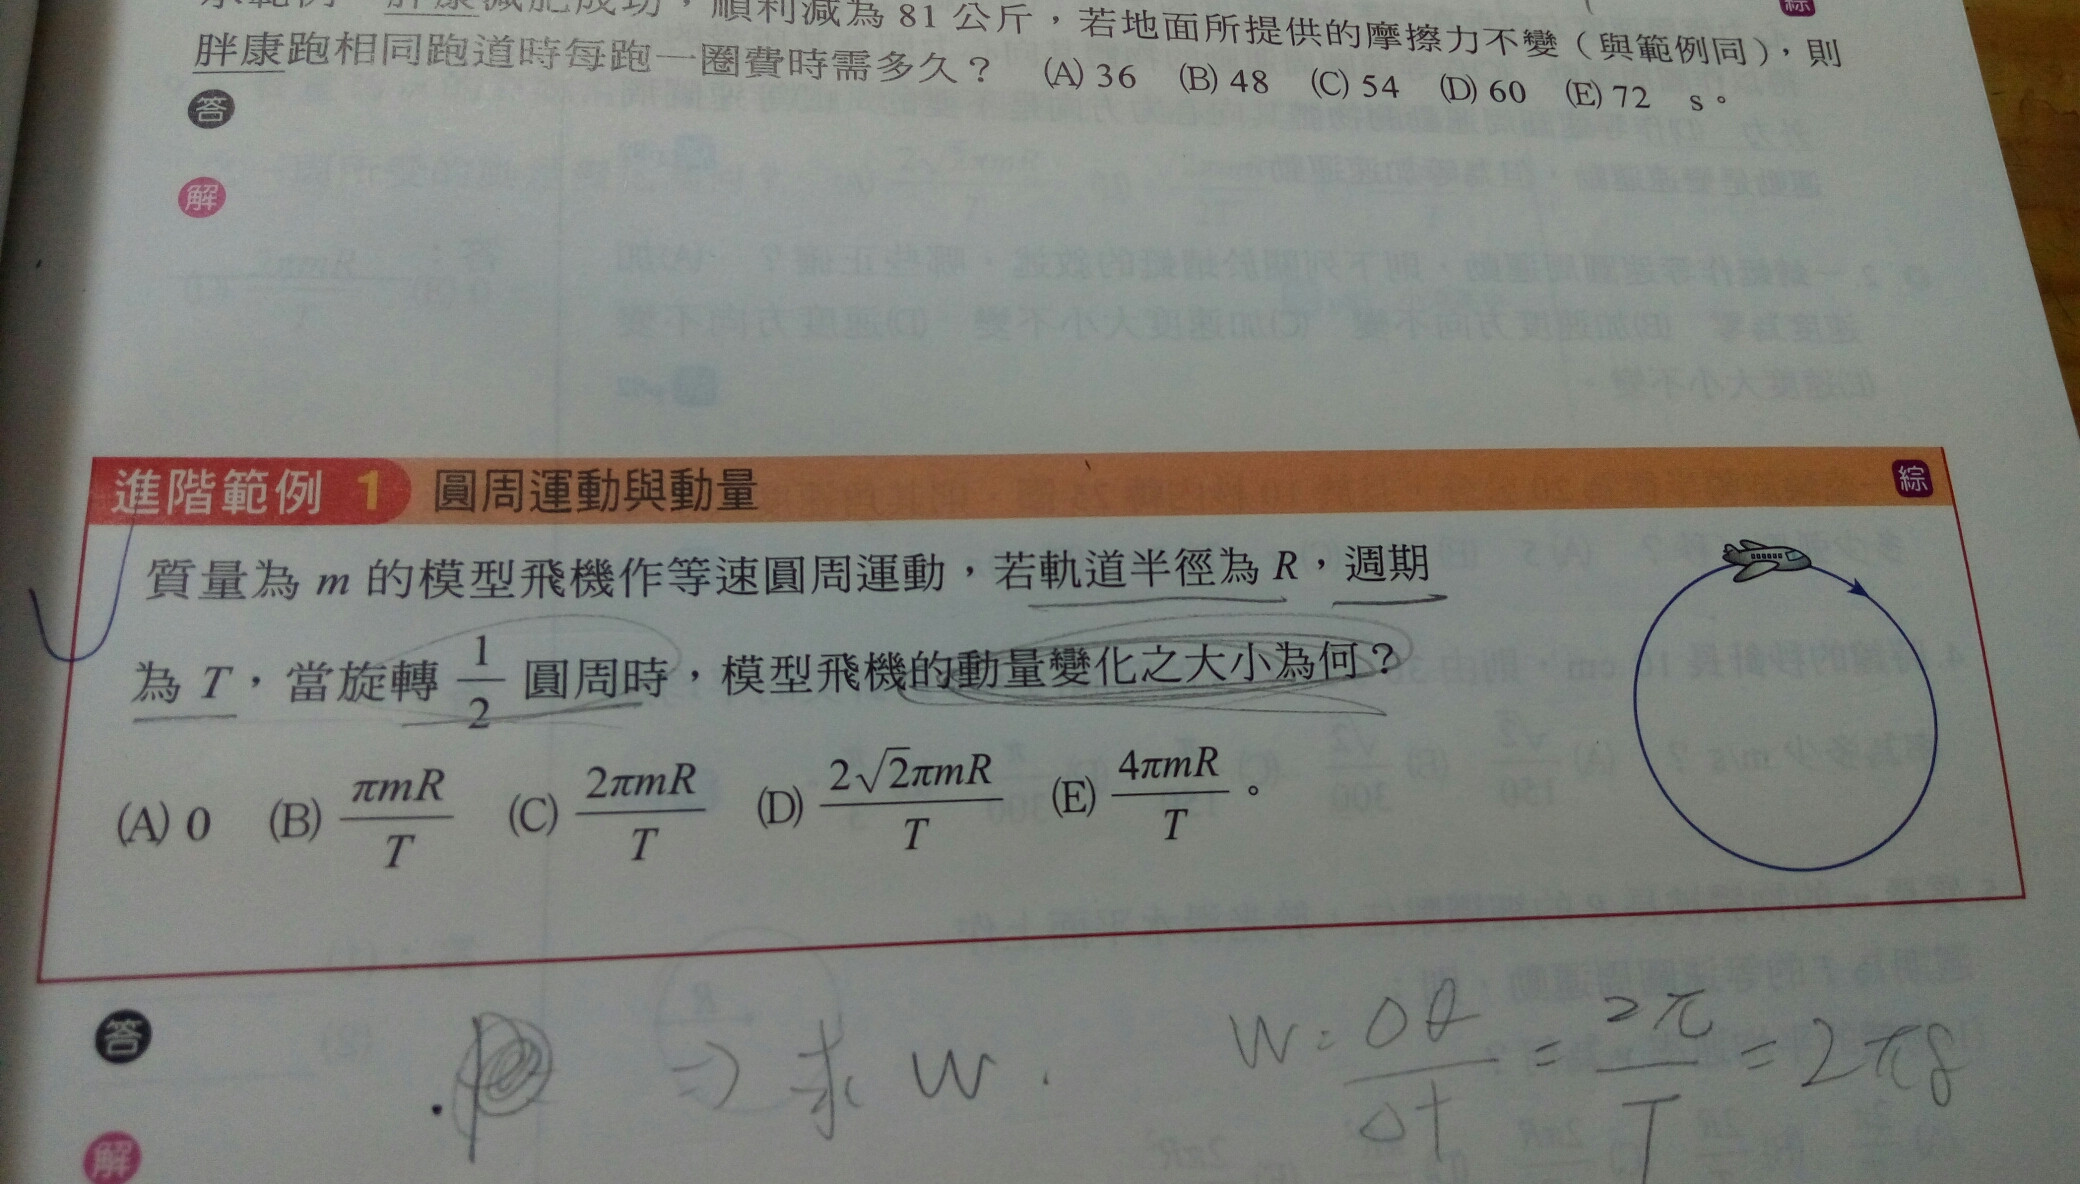 胖康減肥成功，順利減為 81 公斤，若地面所提供的摩擦力不變（與範例同），則
胖康跑相同跑道時每跑一圈費時需多久？ (A) 36 (B) 48 (C) 54 (D) 60 (E) 72 s。
答
解
進階範例 1 圓周運動與動量 綜
質量為 m 的模型飛機作等速圓周運動，若軌道半徑為 R，週期
為 T，當旋轉 1/2 圓周時，模型飛機的動量變化之大小為何？
(A) 0 (B) πmR/T (C) 2πmR/T (D) 2√2πmR/T (E) 4πmR/T。
答
⇒ 求 W . W = Δθ/Δt = 2π/T = 2πf
解